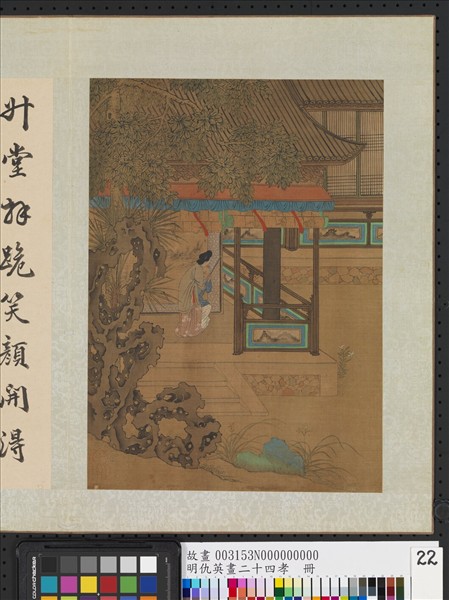 升堂拜跪笑顏開得
故畫 003153N000000000
明仇英畫二十四孝 冊
22